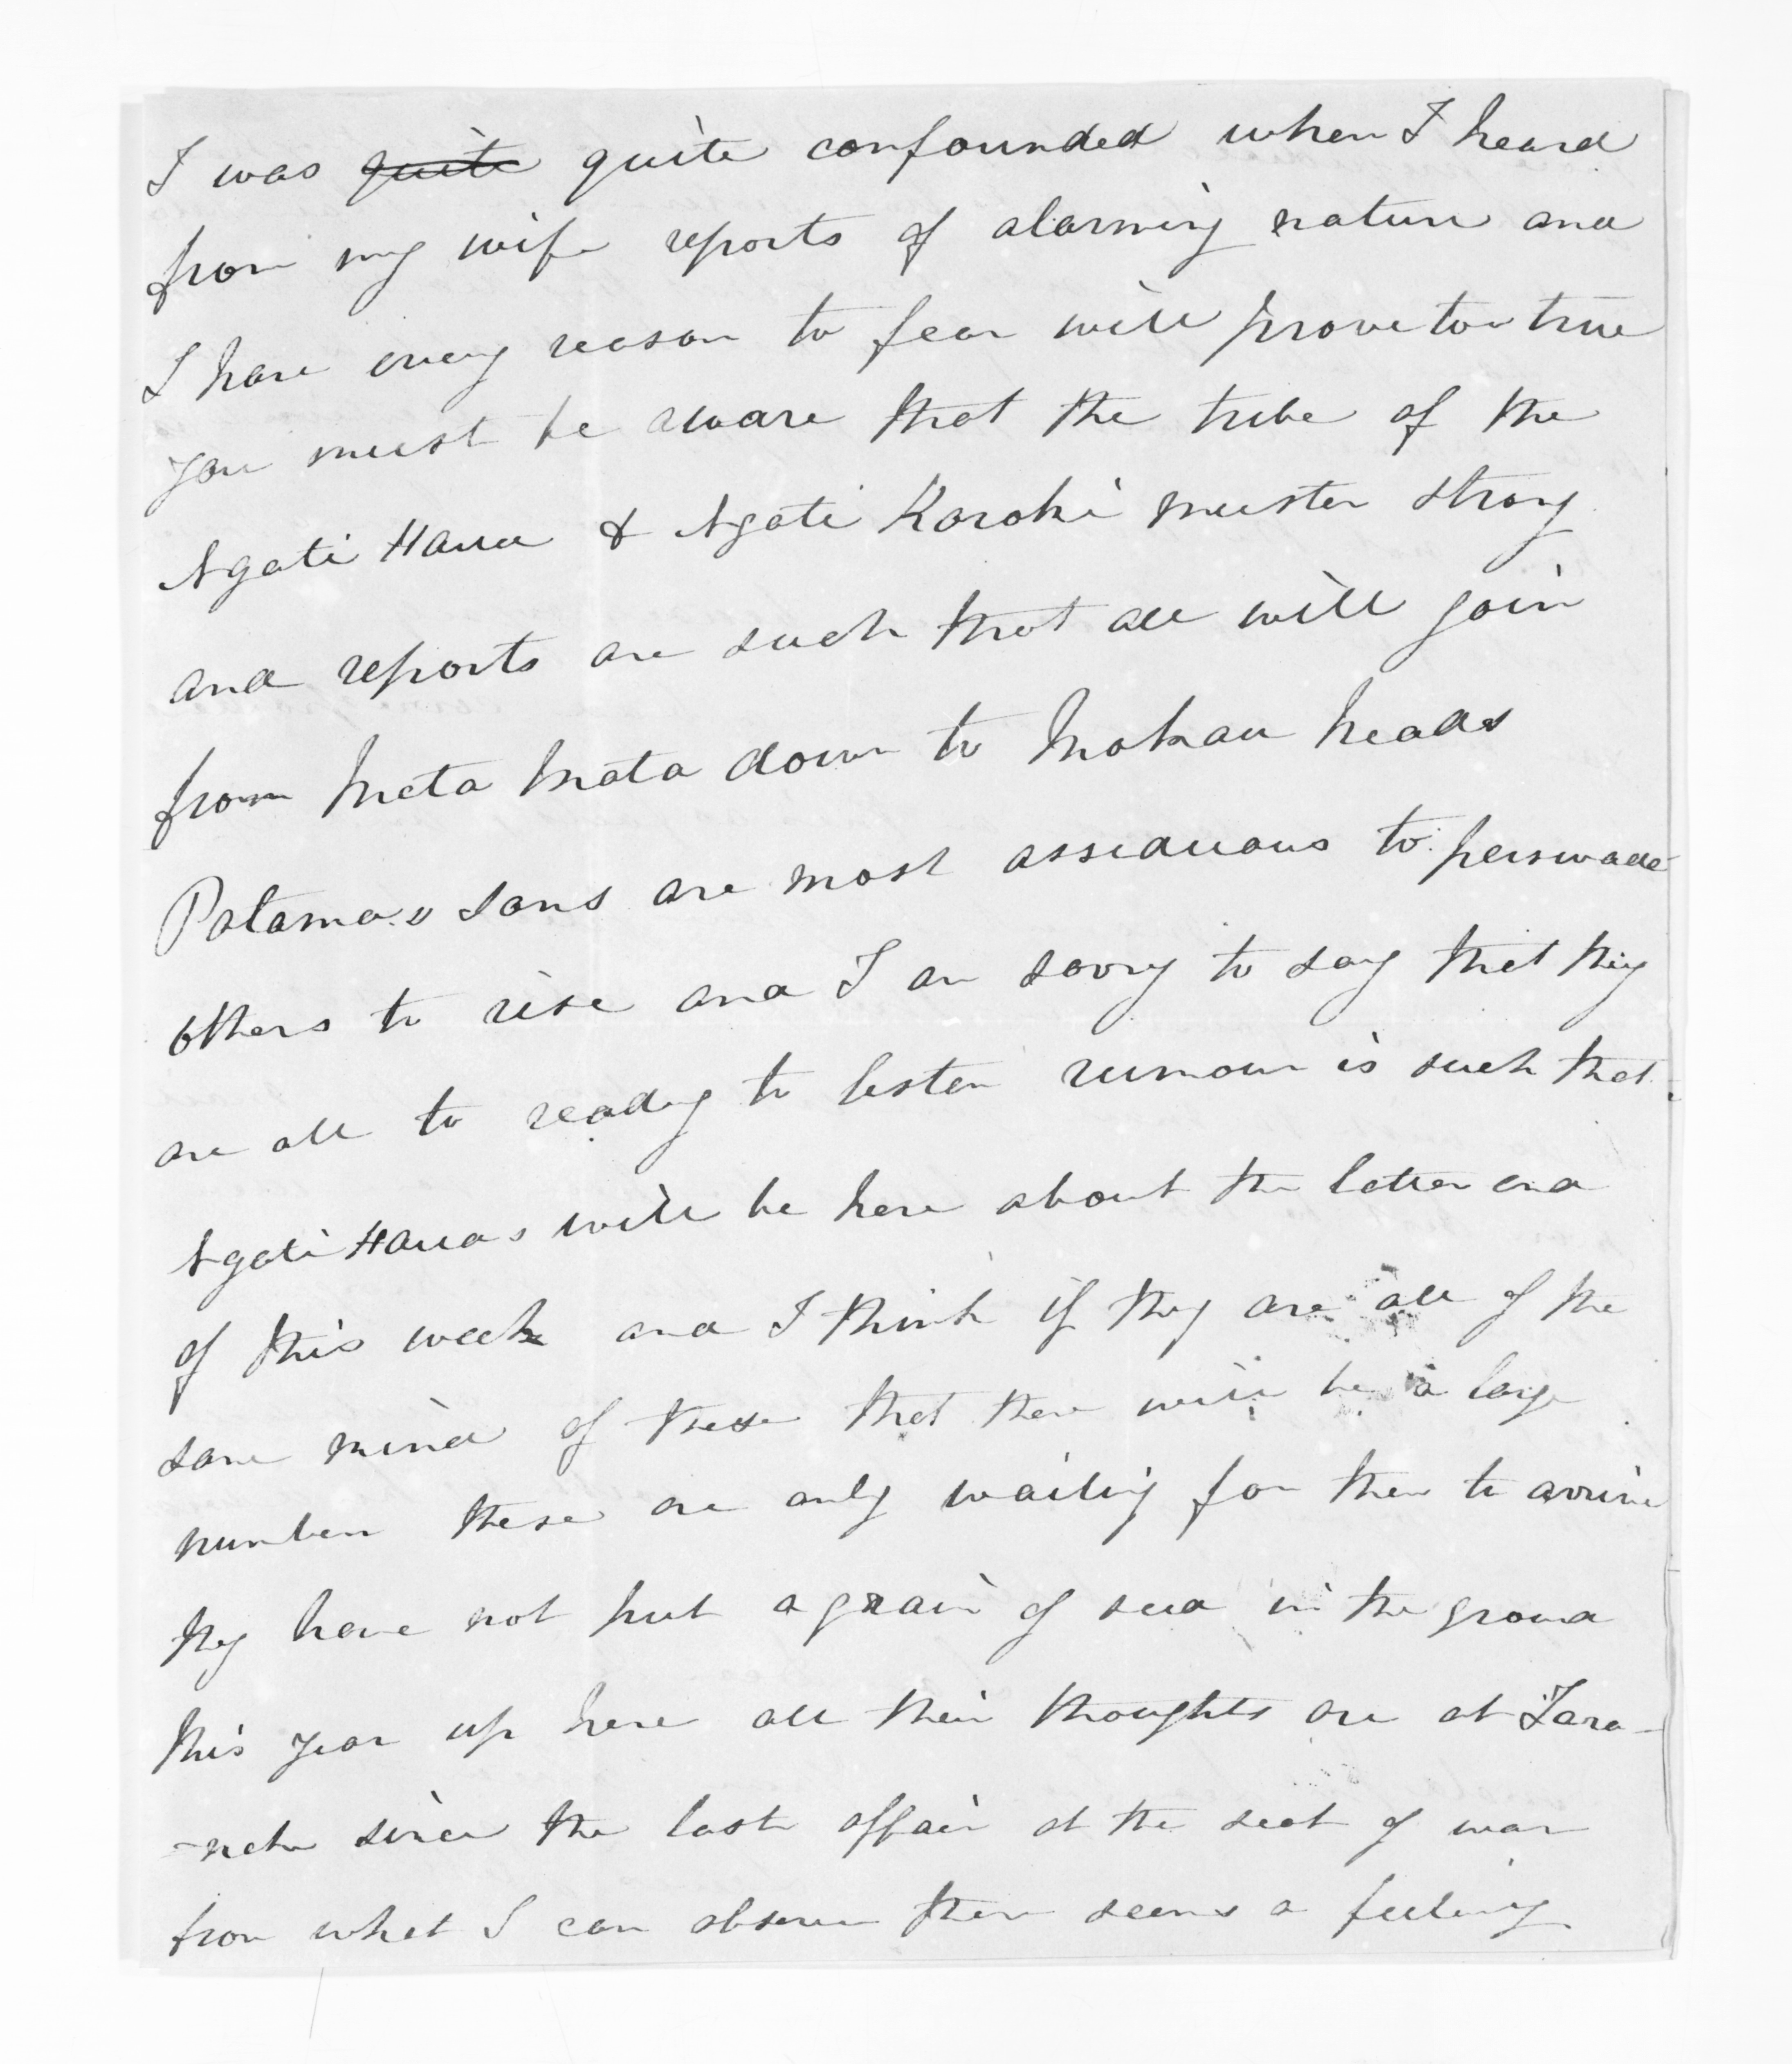 I was quite quite confounded when I heard
from my wife reports of alarming nature and
I have every reason to fear will prove to true
you must be aware that the tribe of the
Ngati Haua & Ngati Koroki muster strong
and reports are such that all will join
from Mata Mata down to Mokau heads
Patama's sons are most assiduous to perswade
others to rise and I am sorry to say that they
are all to ready to listen rumour is such that
Ngati Hauas will be here about the latter end
of this week and I think if they are all of the
same mind of these that there will be a large
number these are only waiting for them to arrive
they have not put a grain of seed in the ground
this year up here all their thoughts are at Tara-
-naki since the last affair at the seat of war
from what I can observe there seems a feeling